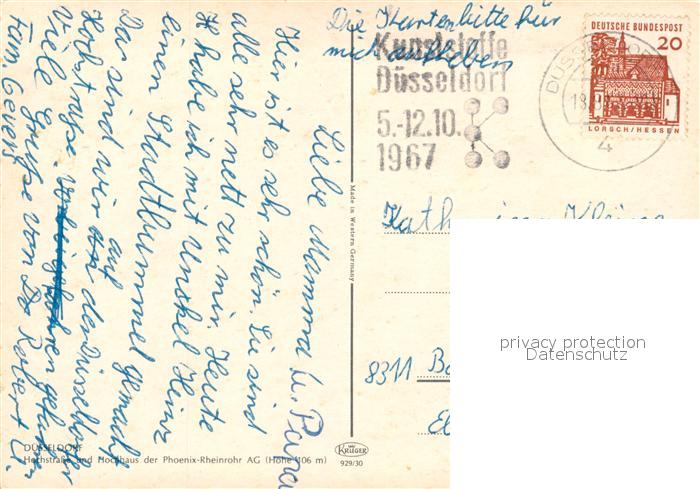 Die Karten bitte für
mich aufheben
Kunststoffe
Düsseldorf
5.-12.10.
1967
DÜSSELDORF
18.
4
DEUTSCHE BUNDESPOST
20
LORSCH/HESSEN
Liebe Mamma u. Papa
Hier ist es sehr schön. Sie sind
alle sehr nett zu mir. Heute
habe ich mit Unckel Heinz
einen Stadtbummel gemacht
Das sind wir auf der Düsseldorfer
Hochstraße gefahren
Viele Grüße von Robert u.
Fam. Geiers
Made in Western Germany
8311
privacy protection
Datenschutz
DÜSSELDORF
Hochstraße und Hochhaus der Phoenix-Rheinrohr AG (Höhe 106 m)
KRÜGER
929/30